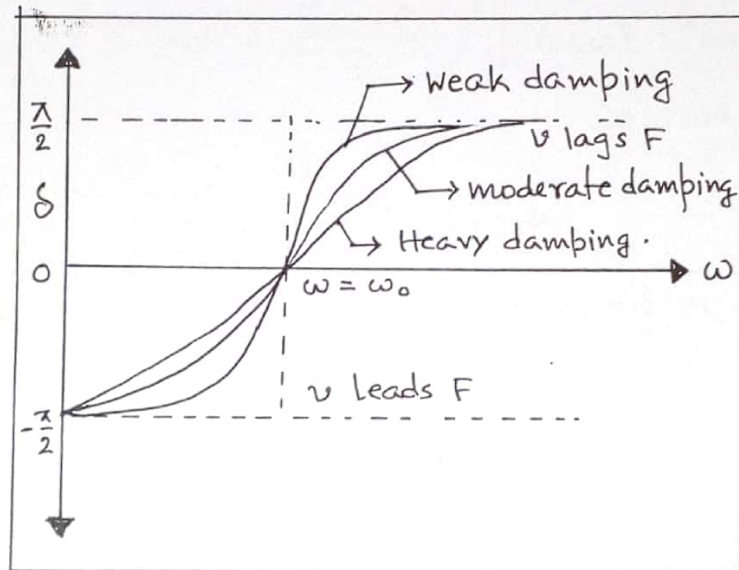 weak damping
π/2
v lags F
δ
moderate damping
Heavy damping.
0
ω
ω = ω₀
v leads F
-π/2